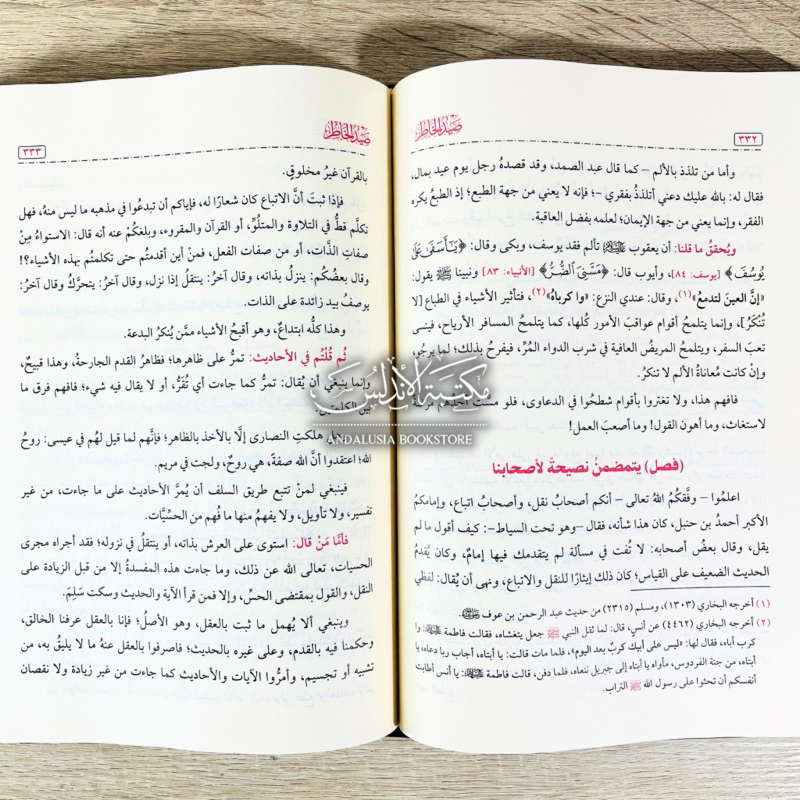 صيد الخاطر
٣٣٢
وأما من تلذذ بالألم – كما قال عبد الصمد، وقد قصده رجل يوم عيد بمال،
فقال له: بالله عليك دعني أتلذذُ بفقري –؛ فإنه لا يعني من جهة الطبع؛ إذ الطبعُ يكره
الفقر، وإنما يعني من جهة الإيمان؛ لعلمه بفضل العاقبة.
ويُحققُ ما قلنا: أن يعقوب ﷺ تألم فقد يوسف، وبكى وقال: ﴿يَٰٓأَسَفَىٰ عَلَىٰ
يُوسُفَ﴾ [يوسف: ٨٤]، وأيوب قال: ﴿مَسَّنِيَ ٱلضُّرُّ﴾ [الأنبياء: ٨٣] ونبينا ﷺ يقول:
«إنَّ العينَ لتدمعُ»(١)، وقال: عندي النزع: «وا كرباهُ»(٢)، فتأثير الأشياء في الطباع [لا
تُنْكَرُ]، وإنما يتلمحُ أقوام عواقبَ الأمور كُلها، كما يتلمحُ المسافر الأرياح، فينسى
تعبَ السفر، ويتلمحُ المريضُ العافية في شرب الدواء المُرِّ، فيفرحُ بذلك؛ لما يرجُو،
وإنْ كانت مُعاناةُ الألم لا تنكرُ.
فافهم هذا، ولا تغتروا بأقوام شطحُوا في الدعاوى، فلو مست أحدهم
لاستغاث، وما أهون القول! وما أصعبَ العمل!
(فصل) يتمضمنُ نصيحةً لأصحابنا
اعلمُوا – وفَّقكُمُ اللهُ تعالى – أنكم أصحابُ نقل، وأصحابُ اتباع، وإمامكمُ
الأكبر أحمدُ بن حنبل، كان هذا شأنه، فقال –وهو تحت السياط–: كيف أقول ما لم
يقل، وقال بعضُ أصحابه: لا تُفت في مسألة لم يتقدمك فيها إمامٌ، وكان يُقدمُ
الحديثَ الضعيف على القياس؛ كان ذلك إيثارًا للنقل والاتباع، ونهى أن يُقالَ: لفظي
(١) أخرجه البخاري (١٣٠٣)، ومسلم (٢٣١٥) من حديث عبد الرحمن بن عوف
(٢) أخرجه البخاري (٤٤٦٢) عن أنس، قال: لما ثقل النبي ﷺ جعل يتغشاه، فقالت فاطمة: وا
كرب أباه، فقال لها: «ليس على أبيك كربٌ بعد اليوم»، فلما مات قالت: يا أبتاه، أجاب ربا دعاه، يا
أبتاه، من جنة الفردوس، مأواه يا أبتاه إلى جبريل ننعاه، فلما دفن، قالت فاطمة: يا أنس أطابت
أنفسكم أن تحثوا على رسول الله ﷺ التراب.
صيد الخاطر
٣٣٣
بالقرآن غيرُ مخلوقٍ.
فإذا ثبتَ أنَّ الاتباع كان شعارًا له، فإياكم أن تبدعُوا في مذهبه ما ليس منهُ، فهل
تكلَّم قطُّ في التلاوة والمتلُوِّ، أو القرآن والمقروء، وبلغكُمْ عنه أنه قال: الاستواءُ مِنْ
صفاتِ الذَّات، أو من صفات الفعل، فمنْ أين أقدمتُم حتى تكلمتُم بهذه الأشياء؟!
وقال بعضُكُم: ينزلُ بذاته، وقال آخرُ: ينتقلُ إذا نزل، وقال آخرُ: يتحركُ وقال آخرُ:
يوصفُ بيد زائدة على الذات.
وهذا كلُّه ابتداعٌ، وهو أقبحُ الأشياء ممَّن يُنكرُ البدعة.
ثُم قُلْتُم في الأحاديث: تمرُّ على ظاهرها؛ فظاهرُ القدم الجارحةُ، وهذا قبيحٌ،
وإنما ينبغي أن يُقالَ: تمرُّ كما جاءت أي تُقَرُّ، أو لا يقال فيه شيء؛ فافهم فرق ما
بين الكلمتين.
هلكتِ النصارى إلَّا بالأخذ بالظاهر؛ فإنَّهم لما قيل لهُم في عيسى: روحُ
الله؛ اعتقدوا أنَّ الله صفةٌ، هي روحٌ، ولجت في مريم.
فينبغي لمنْ تتبع طريق السلف أن يُمرَّ الأحاديث على ما جاءت، من غير
تفسير، ولا تأويل، ولا يفهمُ منها ما فُهم من الحسِّيَّات.
فأمَّا مَنْ قال: استوى على العرش بذاته، أو ينتقلُ في نزوله؛ فقد أجراه مجرى
الحسيات، تعالى الله عن ذلك، وما جاءت هذه المفسدةُ إلا من قبل الزيادة على
النقل، والقول بمقتضى الحسِّ، وإلا فمن قرأ الآية والحديث وسكت سَلِمَ.
وينبغي ألا يُهمل ما ثبت بالعقل، وهو الأصلُ؛ فإنا بالعقل عرفنا الخالق،
وحكمنا فيه بالقدم، وعلى غيره بالحديث؛ فاصرفوا بالعقل عنهُ ما لا يليقُ به، من
تشبيه أو تجسيم، وأمرُّوا الآيات والأحاديث كما جاءت من غير زيادة ولا نقصان
مكتبة الأندلس
ANDALUSIA BOOKSTORE